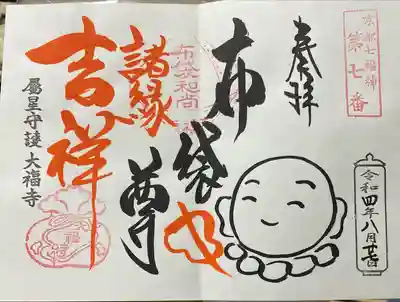 京都七福神
第七番
奉拝
令和四年八月廿一日
布袋尊
布袋和尚
諸縁
吉祥
大福寺